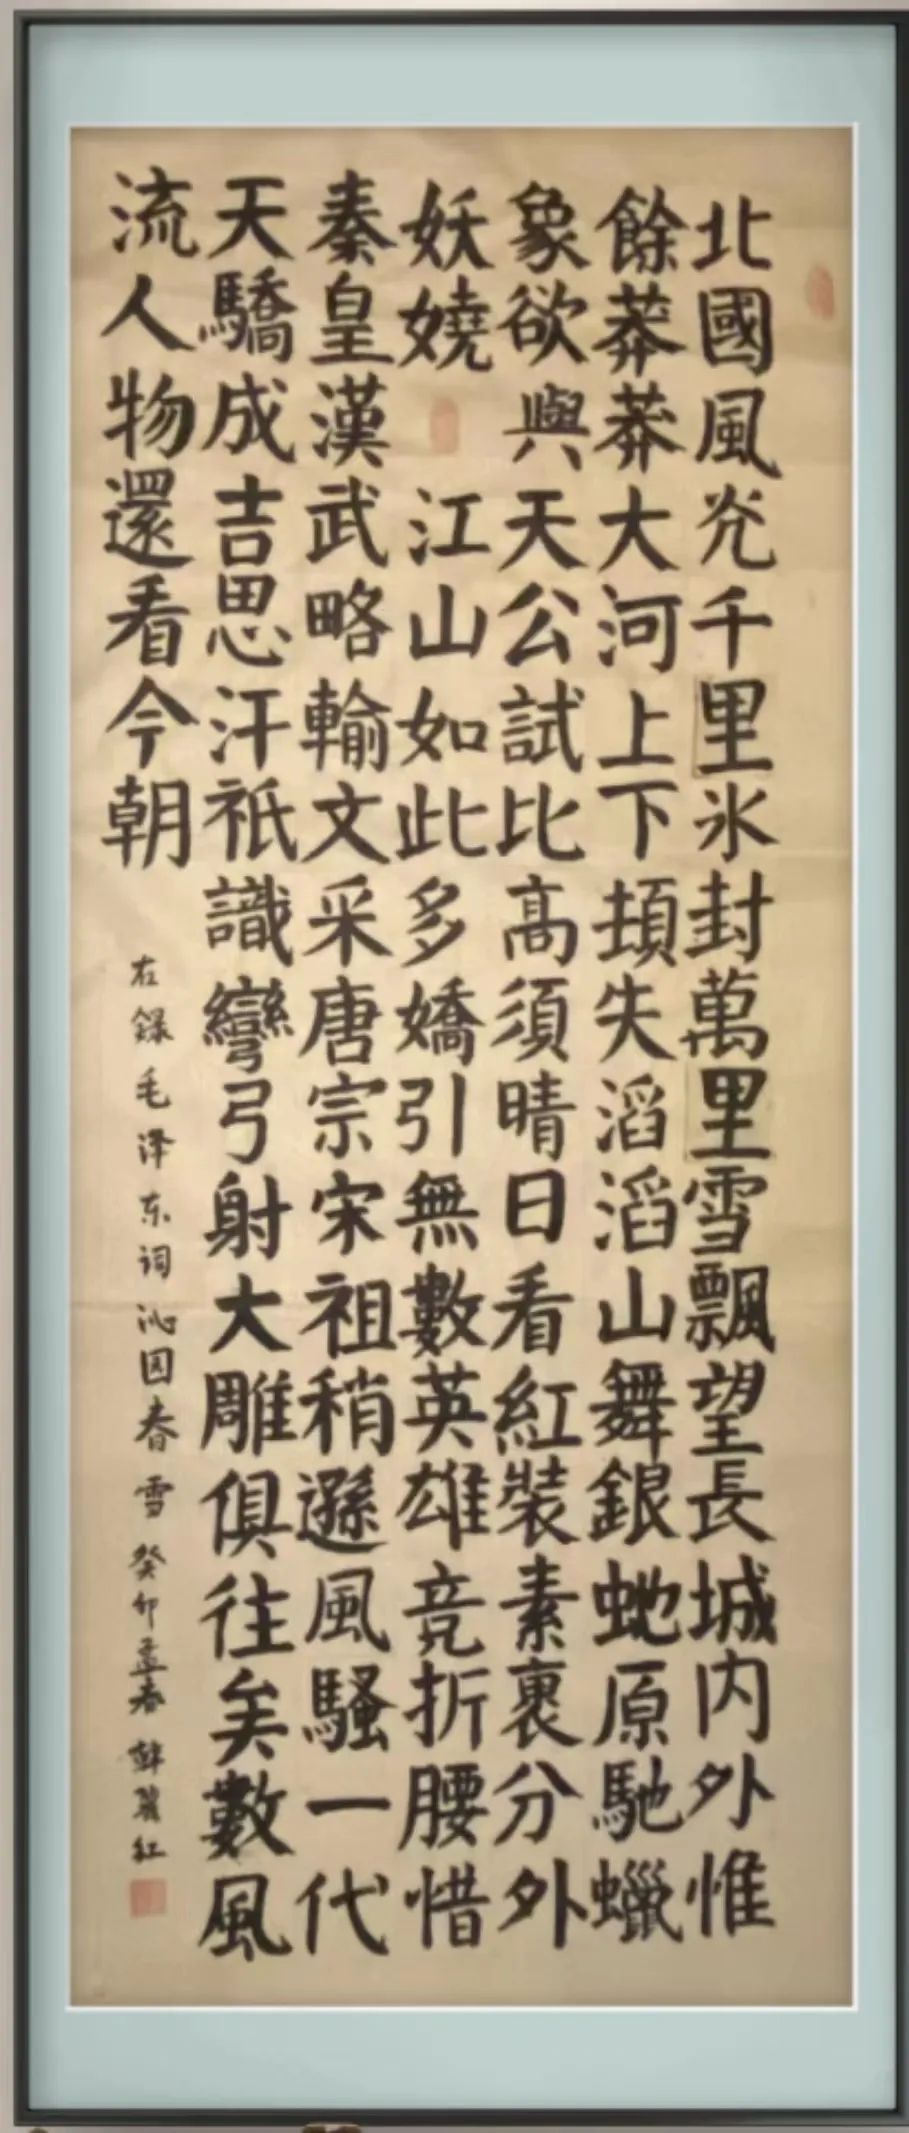 北國風光千里氷封萬里雪飄望長城内外惟
餘莽莽大河上下頓失滔滔山舞銀虵原馳蠟
象欲與天公試比高須晴日看紅裝素裹分外
妖嬈 江山如此多嬌引無數英雄竞折腰惜
秦皇漢武略輸文采唐宗宋祖稍遜風騷一代
天驕成吉思汗祇識彎弓射大雕俱往矣數風
流人物還看今朝
右録毛泽东词沁园春雪癸卯孟春韩丽红